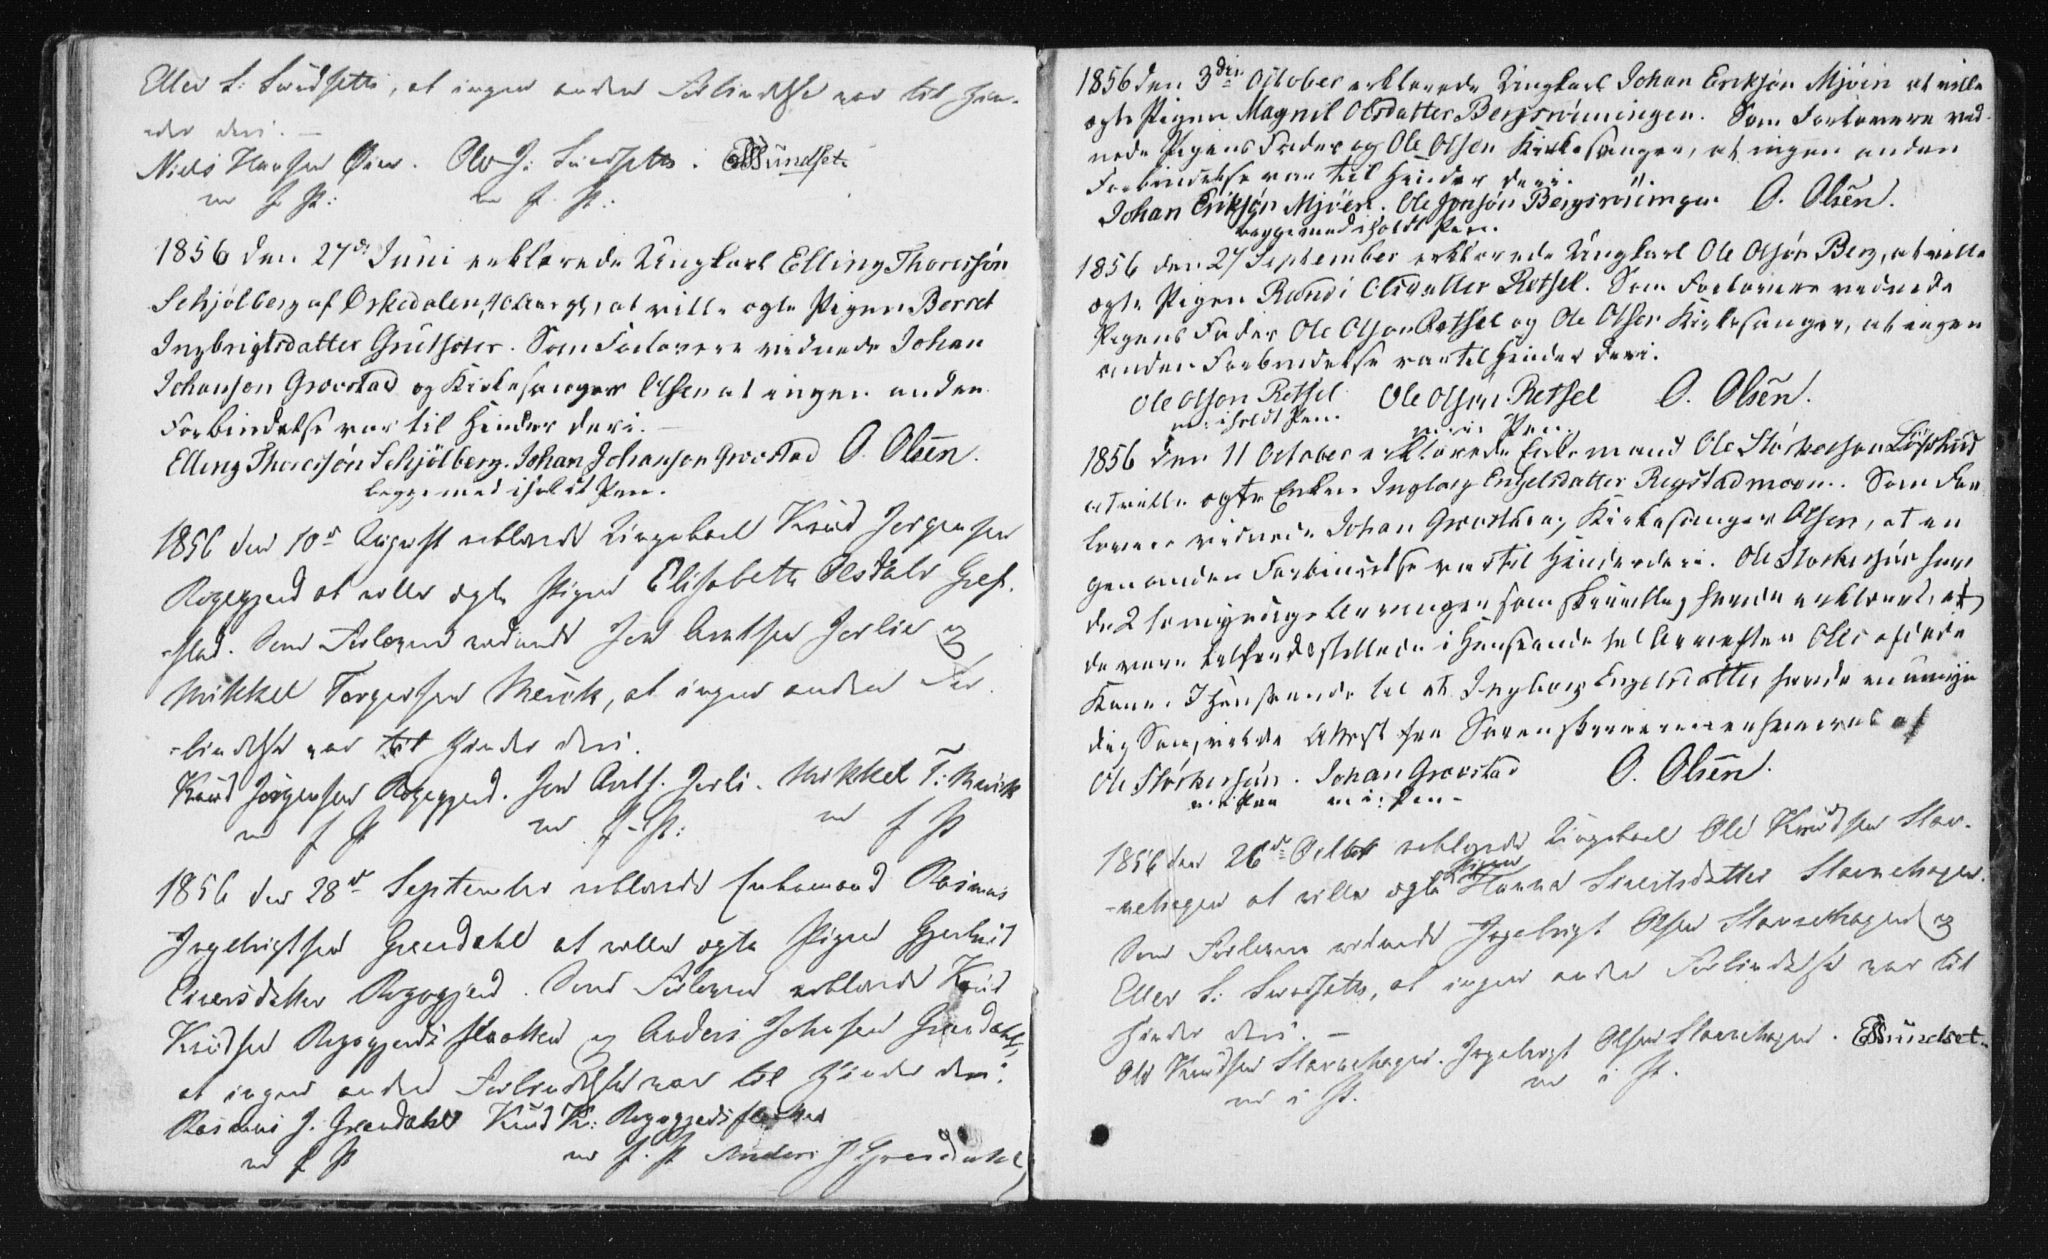 Eller S: Sundsette, at ingen anden Forbindelse var til Hin-
der deri. —
Niels Hansen Øien. Ole J: Sundsette. ESSundset.
m f P: m f. P:
1856 den 27de Juni erklærede Ungkarl Elling Thoresøn
Schjølberg af Ørkedalen, at ville ægte Pigen Berret
Ingbrigtsdatter Grutseter. Som Forlovere vidnede Johan
Johanson Grovstad og Kirkesanger Olsen at ingen anden
Forbindelse var til Hinder deri. —
Elling Thoresøn Schjølberg. Johan Johanson Grovstad O. Olsen.
begge med iholdt Pen.
1856 den 10de August erklærede Ungekarl Knud Jørgensen
Rogogjerd at ville ægte Pigen Elisabeth Olsdatr Gref-
stad. Som Forlovere vidnede Jon Arntsen Jerlie og
Mikkel Torgersen Meslk, at ingen anden For-
bindelse var til Hinder deri.
Knud Jørgensen Rogogjerd. Jon Arnts. Jerli. Mikkel T:
m f P m f. P: m f P
1856 den 28de September erklærede Enkemand Rasmus
Ingebrigtsen Grendahl at ville ægte Pigen Gjertrud
Siversdatter Rogogjerd. Som Forlovere erklærede Knud
Knudsen Rogogjerdsslætten og Anders Johnsen Grendahl,
at ingen anden Forbindelse var til Hinder deri.
Rasmus J. Grendahl Knud K: Rogogjerdsslætten
m f P m f. P Anders J Grendahl
1856 den 3die October erklærede Ungkarl Johan Eriksøn Mjøen at ville
ægte Pigen Magnil Olsdatter Bergsrønningen. Som Forlovere vid-
nede Pigens Fader og Ole Olsen Kirkesanger, at ingen anden
Forbindelse var til Hinder deri.
Johan Eriksøn Mjøen. Ole Jonsøn Bergsrønningen O. Olsen.
begge med iholdt Pen.
1856 den 27 September erklærede Ungkarl Ole Olsøn Berg, at ville
ægte Pigen Randi Olsdatter Retsel. Som Forlovere vidnede
Pigens Fader Ole Olson Retsel og Ole Olsen Kirkesanger, at ingen
anden Forbindelse var til Hinder deri.
Ole Olson Retsel Ole Olsøn Retsel O. Olsen.
m: iholdt Pen. m: i: Pen.
1856 den 11 October erklærede Enkemand Ole Størkerson
at ville ægte Enken Ingborg Engelsdatter Regstadmoen. Som For-
lovere vidnede Johan Grovstad og Kirkesanger Olsen, at in-
gen anden Forbindelse var til Hinder deri. Ole Størkersøn hav-
de 2 som myndige Arvinger som skriveligt havde erklæret, at
de vare tilfredsstillede i Henseende til Arv efter Ole's afdøde
Kone. I Henseende til at Ingborg Engelsdatter havde en umyn-
dig Søn, vilde Attest fra Sorenskriveren
Ole Størkersøn. Johan Grovstad O. Olsen.
m. i. Pen m i: Pen.
1856 den 26de Octbr erklærede Ungekarl Ole Knudsen Stav-
nehagen at ville ægte Pigen Hanna Siversdatter Stavnehagen.
Som Forlovere vidnede Ingebrigt Olsen Stavnehagen og
Eller S: Sundsette, at ingen anden Forbindelse var til
Hinder deri. —
Ole Knudsen Stavnehagen. Ingebrigt Olsen Stavnehagen. ESSundset.
m i P. m i P.